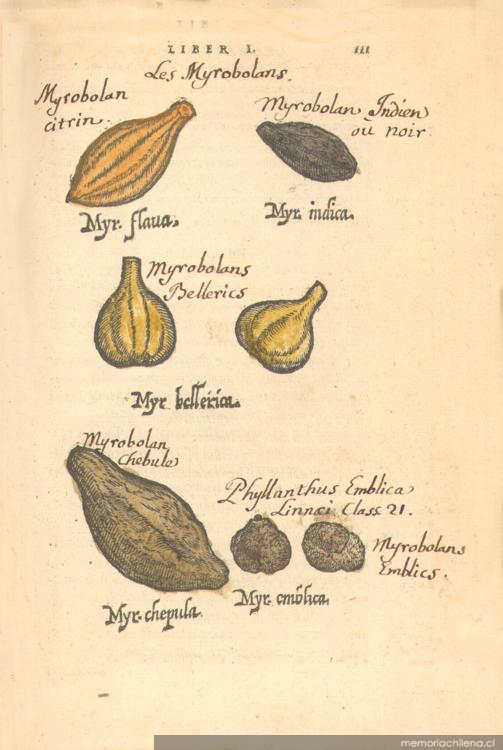 LIBER I. 111
Les Myrobolans.
Myrobolan
citrin.
Myrobolan Indien
où noir.
Myr. flaua.
Myr. indica.
Myrobolans
Bellerics
Myr bellerica.
Myrobolan
chebule
Phyllanthus Emblica
Linnæi Class 21.
Myrobolans
Emblics.
Myr. chepula.
Myr. emblica.
www.memoriachilena.cl